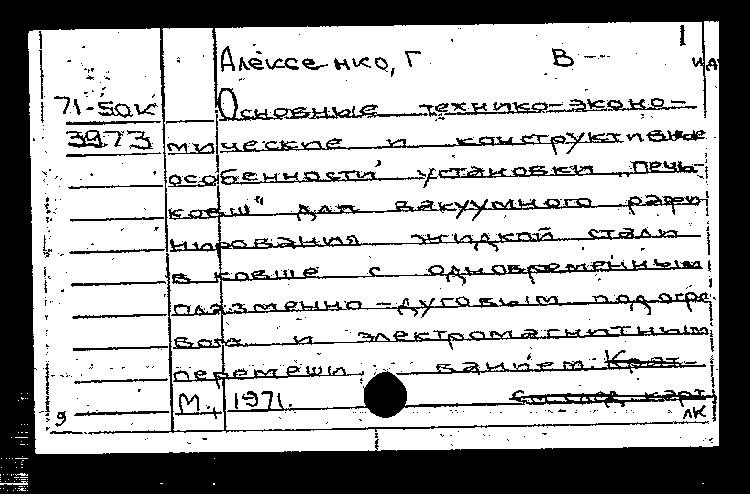 1
Алексенко, Г В
71-50К Основные технико-эконо-
3973 мические и конструктивные
особенности установки „печь-
ковш" для вакуумного рафи
нирования жидкой стали
в ковше с одновременным
плазменно-дуговым подогре
вом и электромагнитным
перемешиванием. Крат-
М., 1971. См след карт
9 ЛК